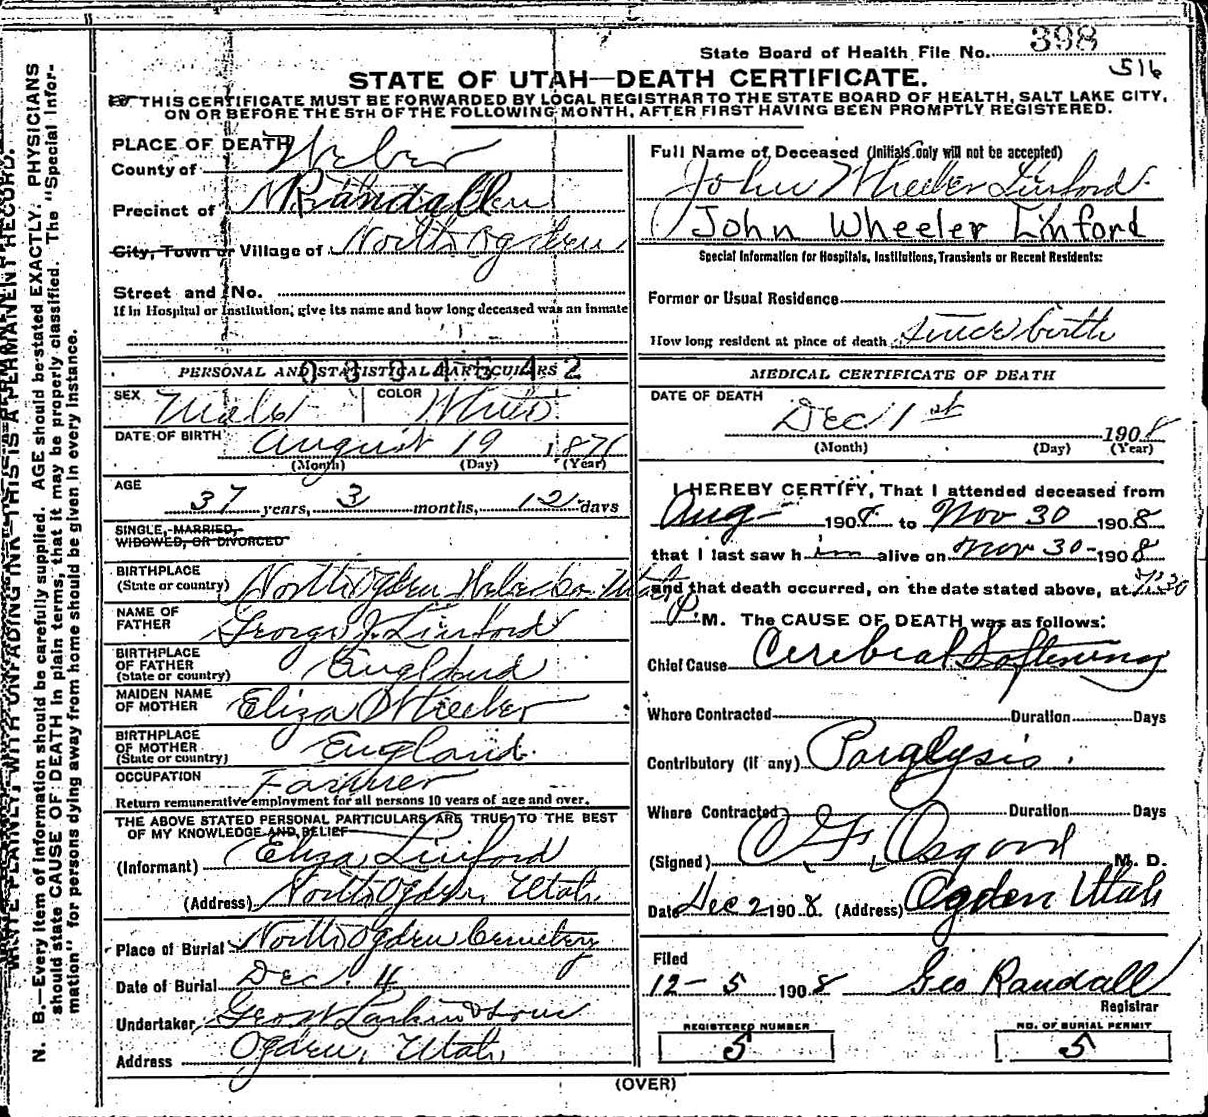 State Board of Health File No. 398
516
STATE OF UTAH—DEATH CERTIFICATE.
THIS CERTIFICATE MUST BE FORWARDED BY LOCAL REGISTRAR TO THE STATE BOARD OF HEALTH, SALT LAKE CITY,
ON OR BEFORE THE 5TH OF THE FOLLOWING MONTH, AFTER FIRST HAVING BEEN PROMPTLY REGISTERED.
PLACE OF DEATH
County of Weber
Precinct of Randall
City, Town or Village of North Ogden
Street and No.
If in Hospital or Institution, give its name and how long deceased was an inmate
0334542
PERSONAL AND STATISTICAL PARTICULARS
SEX Male COLOR White
DATE OF BIRTH August 19 1871
(Month) (Day) (Year)
AGE
37 years, 3 months, 12 days
SINGLE, MARRIED,
WIDOWED, OR DIVORCED
BIRTHPLACE
(State or country) North Ogden Weber Co. Utah
NAME OF
FATHER George J. Linford
BIRTHPLACE
OF FATHER
(State or country) England
MAIDEN NAME
OF MOTHER Eliza Wheeler
BIRTHPLACE
OF MOTHER
(State or country) England
OCCUPATION Farmer
Return remunerative employment for all persons 10 years of age and over.
THE ABOVE STATED PERSONAL PARTICULARS ARE TRUE TO THE BEST
OF MY KNOWLEDGE AND BELIEF
(Informant) Eliza Linford
(Address) North Ogden, Utah.
Place of Burial North Ogden Cemetery
Date of Burial Dec. 4
Undertaker Geo W Larkin & Sons
Address Ogden, Utah,
Full Name of Deceased (Initials only will not be accepted)
John Wheeler Linford.
John Wheeler Linford
Special Information for Hospitals, Institutions, Transients or Recent Residents:
Former or Usual Residence
How long resident at place of death since birth
MEDICAL CERTIFICATE OF DEATH
DATE OF DEATH
Dec 1st 1908
(Month) (Day) (Year)
I HEREBY CERTIFY, That I attended deceased from
Aug 1908 to Nov 30 1908
that I last saw him alive on Nov 30 1908
and that death occurred, on the date stated above, at 7:30
P. M. The CAUSE OF DEATH was as follows:
Chief Cause Cerebral Softening
Where Contracted Duration Days
Contributory (if any) Paralysis.
Where Contracted Duration Days
(Signed) Osgood M. D.
Date Dec 2 1908. (Address) Ogden Utah
Filed
12-5 1908 Geo Randall
Registrar
REGISTERED NUMBER
5
NO. OF BURIAL PERMIT
5
(OVER)
WRITE PLAINLY WITH UNFADING INK—THIS IS A PERMANENT RECORD.
N. B.—Every item of information should be carefully supplied. AGE should be stated EXACTLY. PHYSICIANS
should state CAUSE OF DEATH in plain terms, that it may be properly classified. The "Special Infor-
mation" for persons dying away from home should be given in every instance.